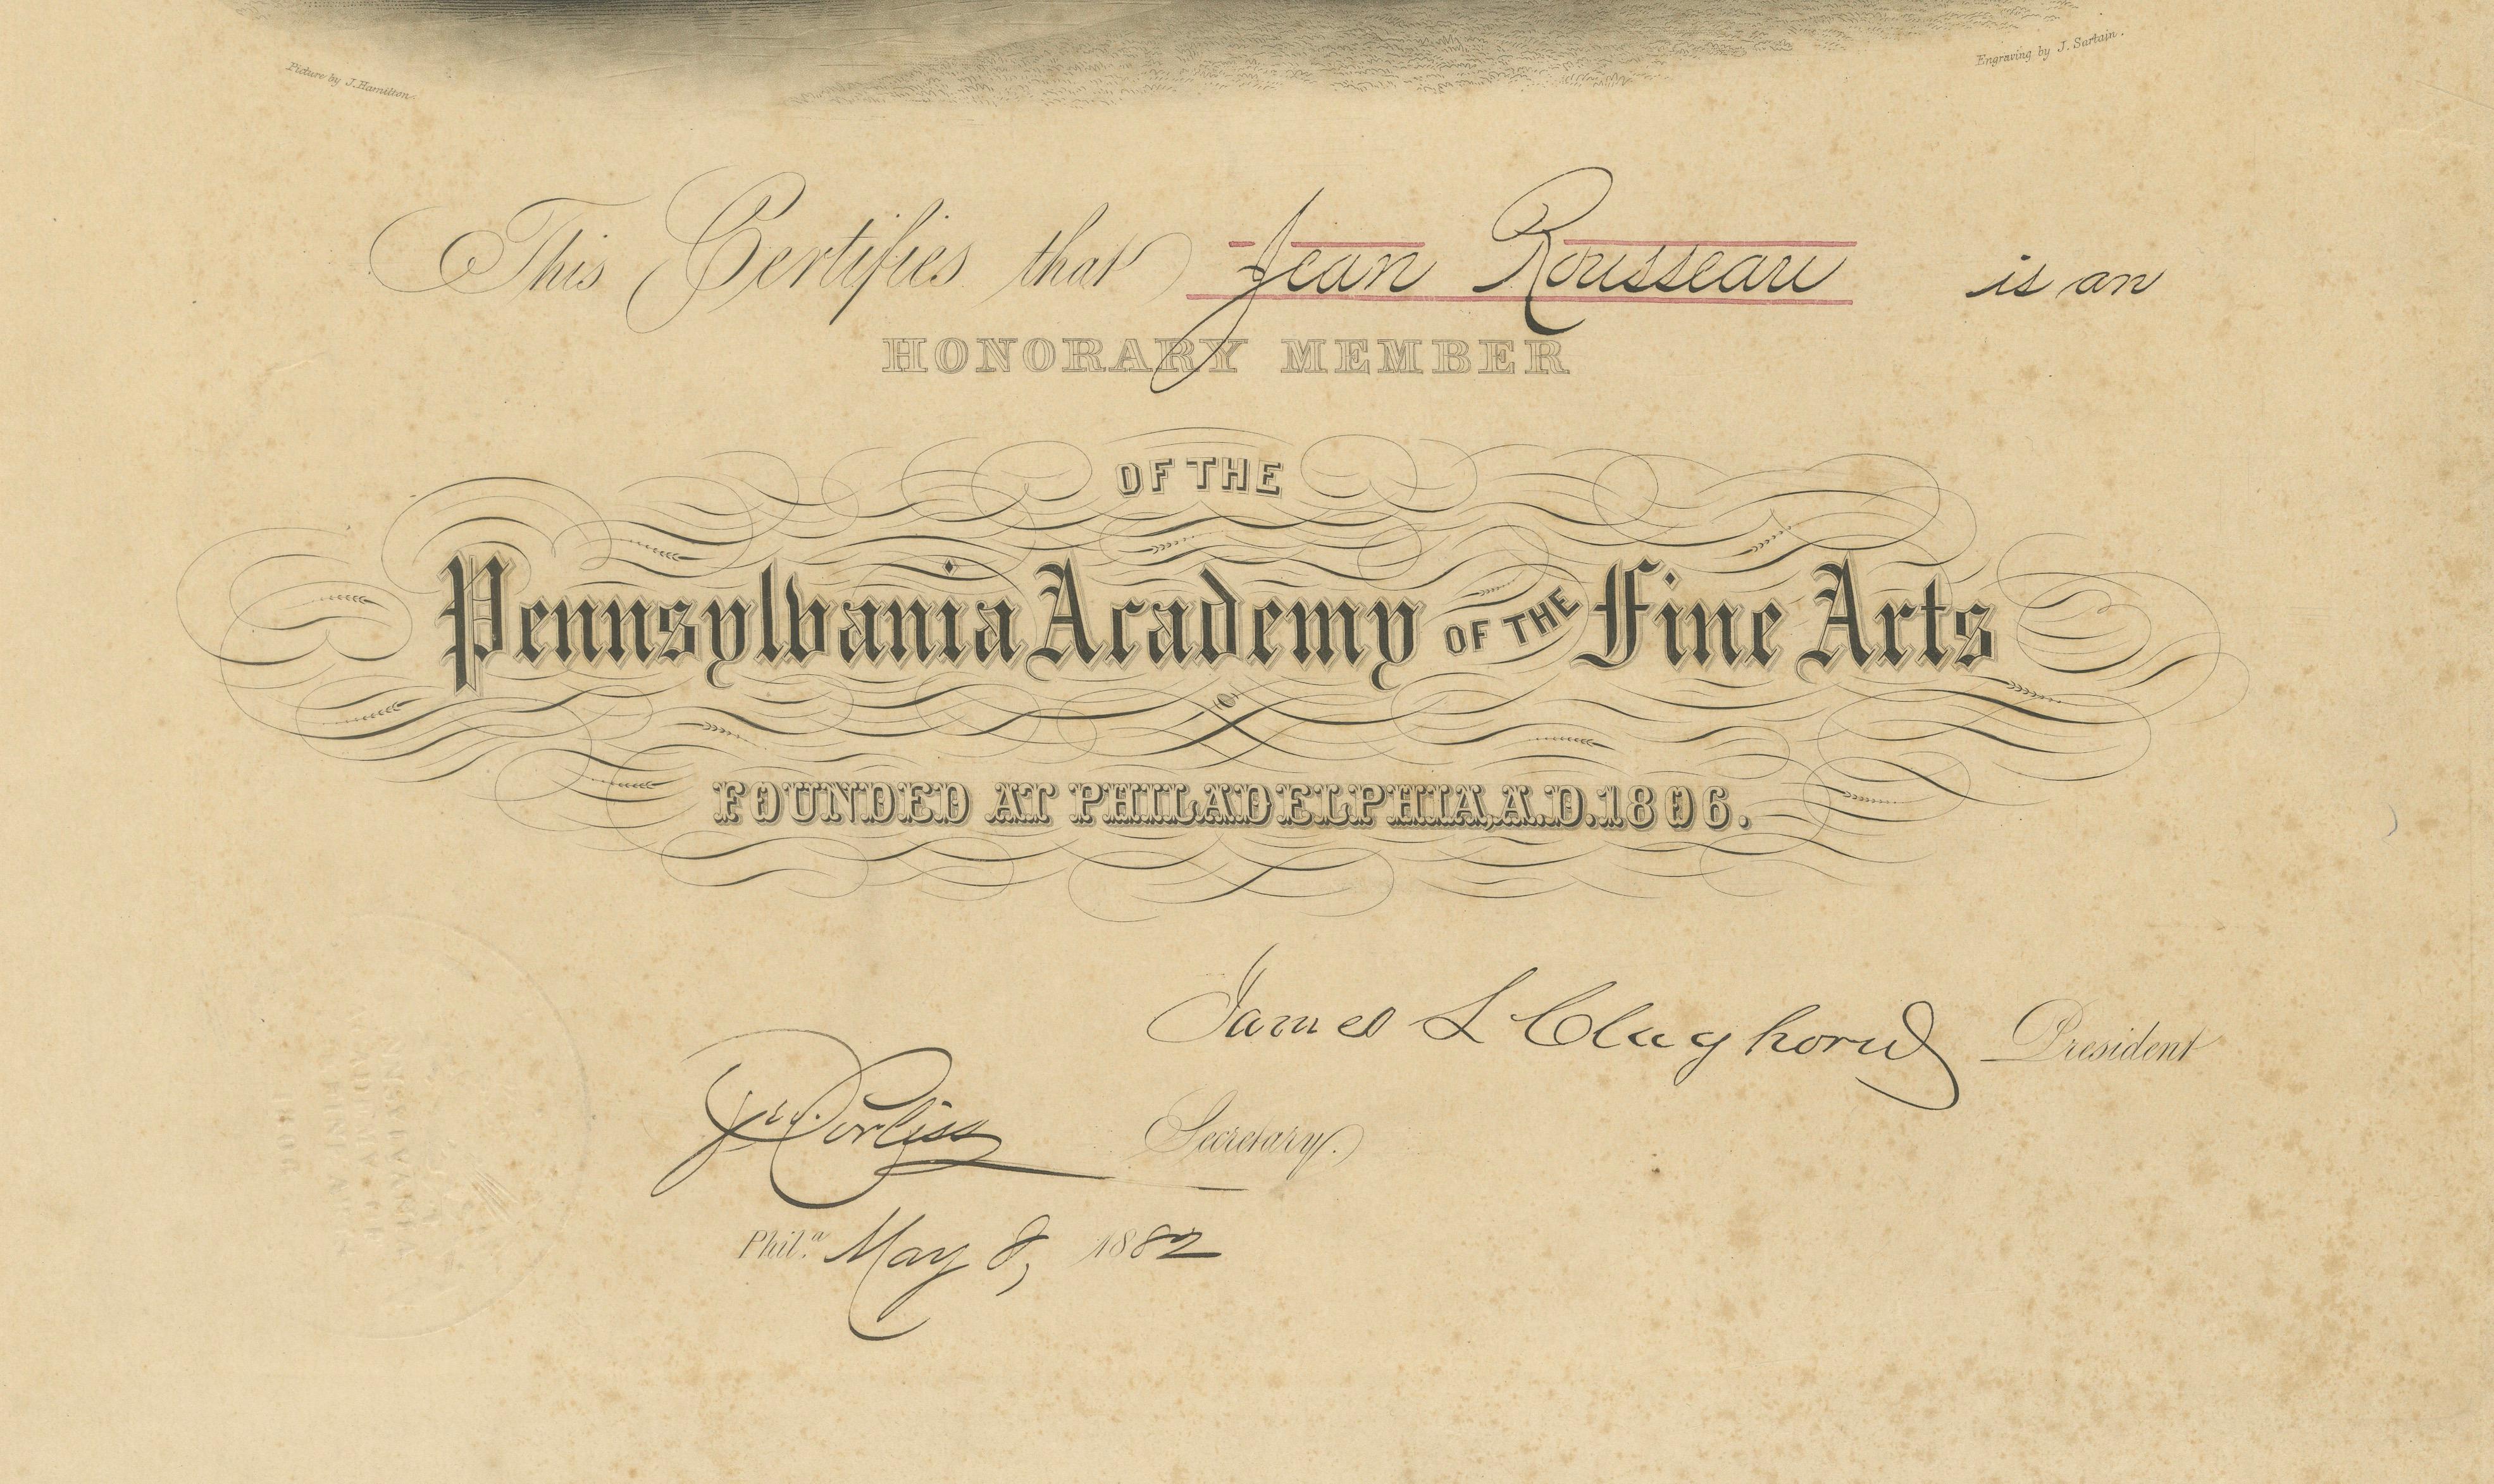 Picture by J. Hamilton
Engraving by J. Sartain.
This Certifies that Jean Rousseau is an
HONORARY MEMBER
OF THE
Pennsylvania Academy OF THE Fine Arts
FOUNDED AT PHILADELPHIA, A.D. 1806.
James L Claghorn President
Corliss Secretary.
Phil.a May 8, 1882